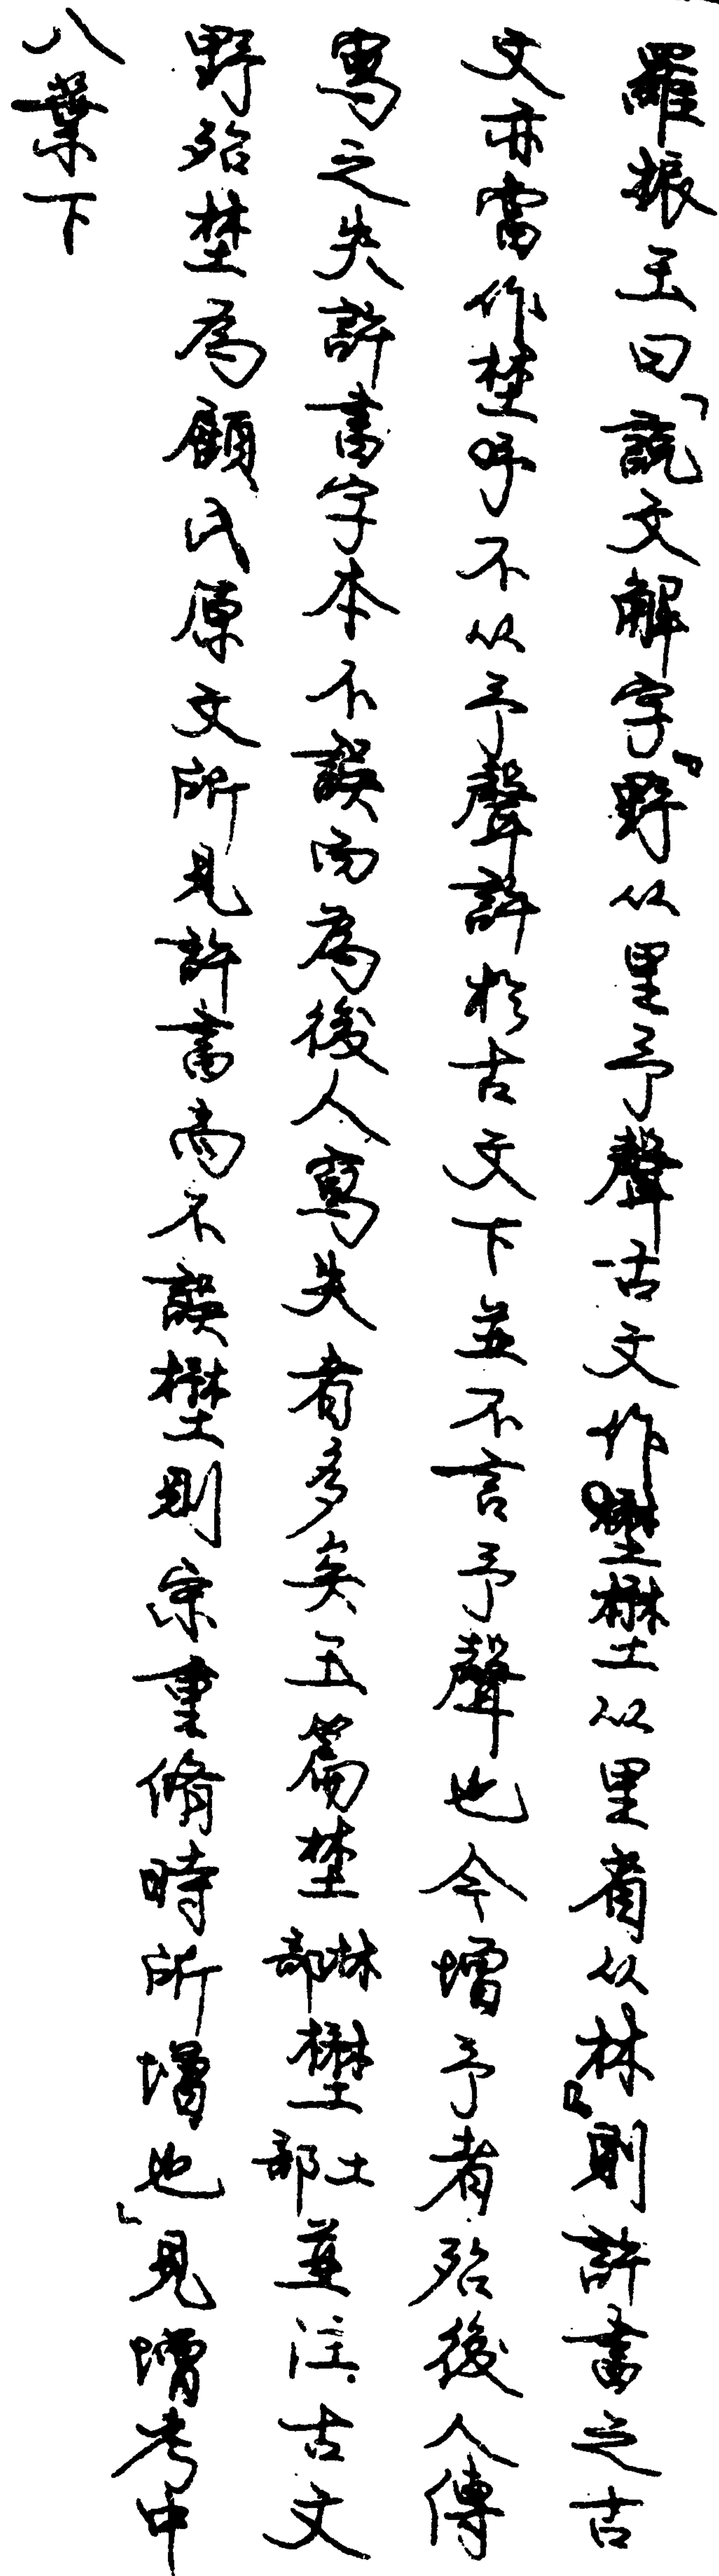 羅振玉曰「說文解字『野从里予聲古文作壄壄从里省从林』則許書之古
文亦當作埜字不从予聲許於古文下並不言予聲也今增予者殆後人傳
寫之失許書字本不誤而為後人寫失者多矣玉篇埜林部壄土部並注古文
野殆埜為顧氏原文所見許書尚不誤壄則宋重脩時所增也」見增考中
八葉下